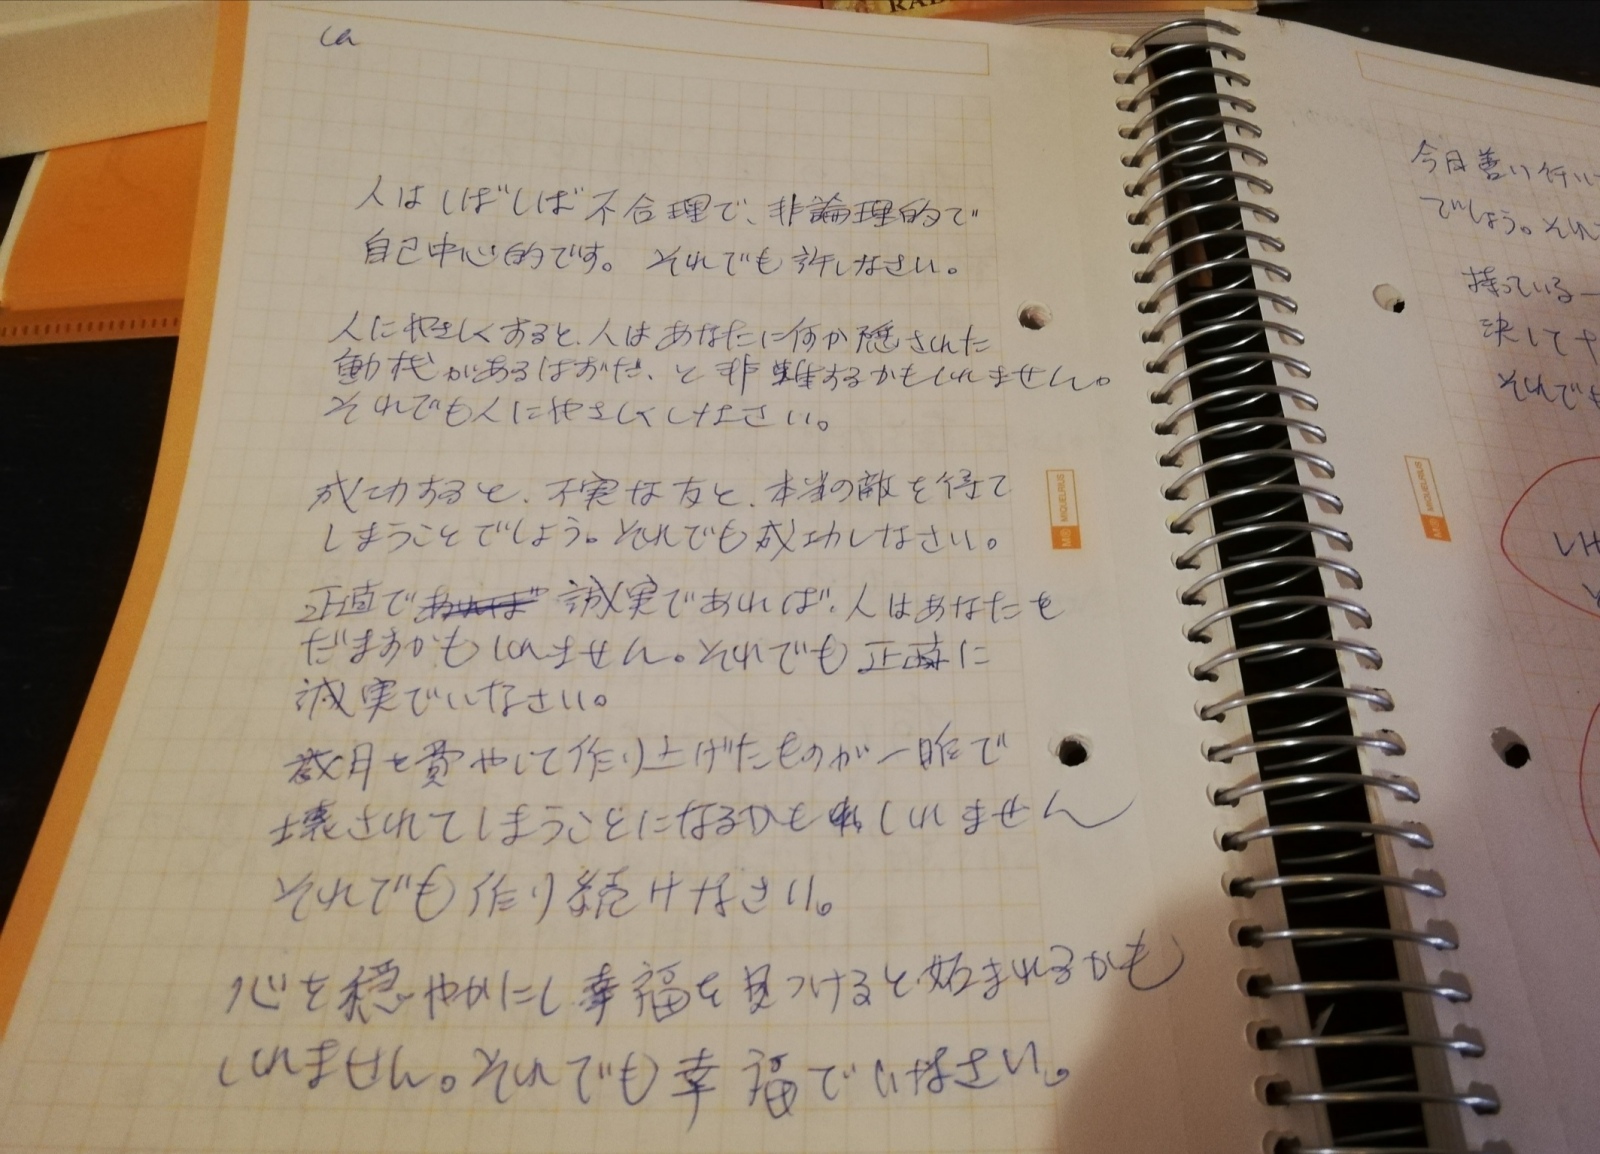 人はしばしば不合理で、非論理的で
自己中心的です。それでも許しなさい。
人にやさしくすると、人はあなたに何か隠された
動機があるはずだ、と非難するかもしれません。
それでも人にやさしくしなさい。
成功すると、不実な友と、本当の敵を得て
しまうことでしょう。それでも成功しなさい。
正直で あれば 誠実であれば、人はあなたを
だますかもしれません。それでも正直に
誠実でいなさい。
歳月を費やして作り上げたものが一晩で
壊されてしまうことになるかもしれません
それでも作り続けなさい。
心を穏やかにし幸福を見つけると妬まれるかも
しれません。それでも幸福でいなさい。
MIQUELRIUS
今日善い行い
でしょう。それ
持っている
決して
それでも
MIQUELRIUS